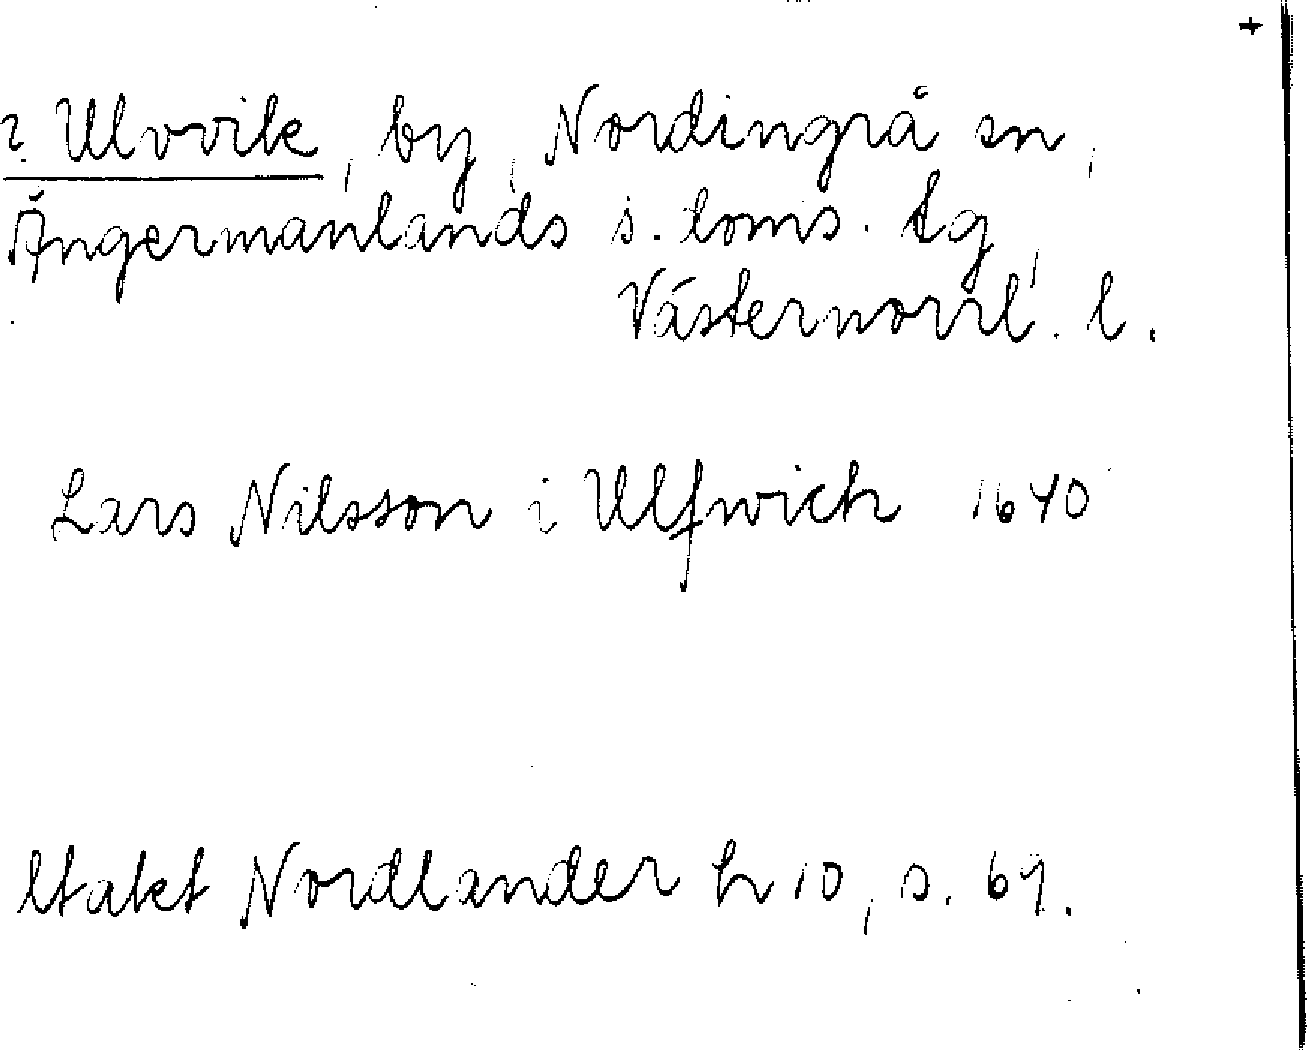 ? Ulvvik, by, Nordingrå sn,
Ångermanlands s. doms. tg,
Västernorrl. l.
Lars Nilsson i Ulfwich 1640
Utakt Nordlander h 10, s. 69.